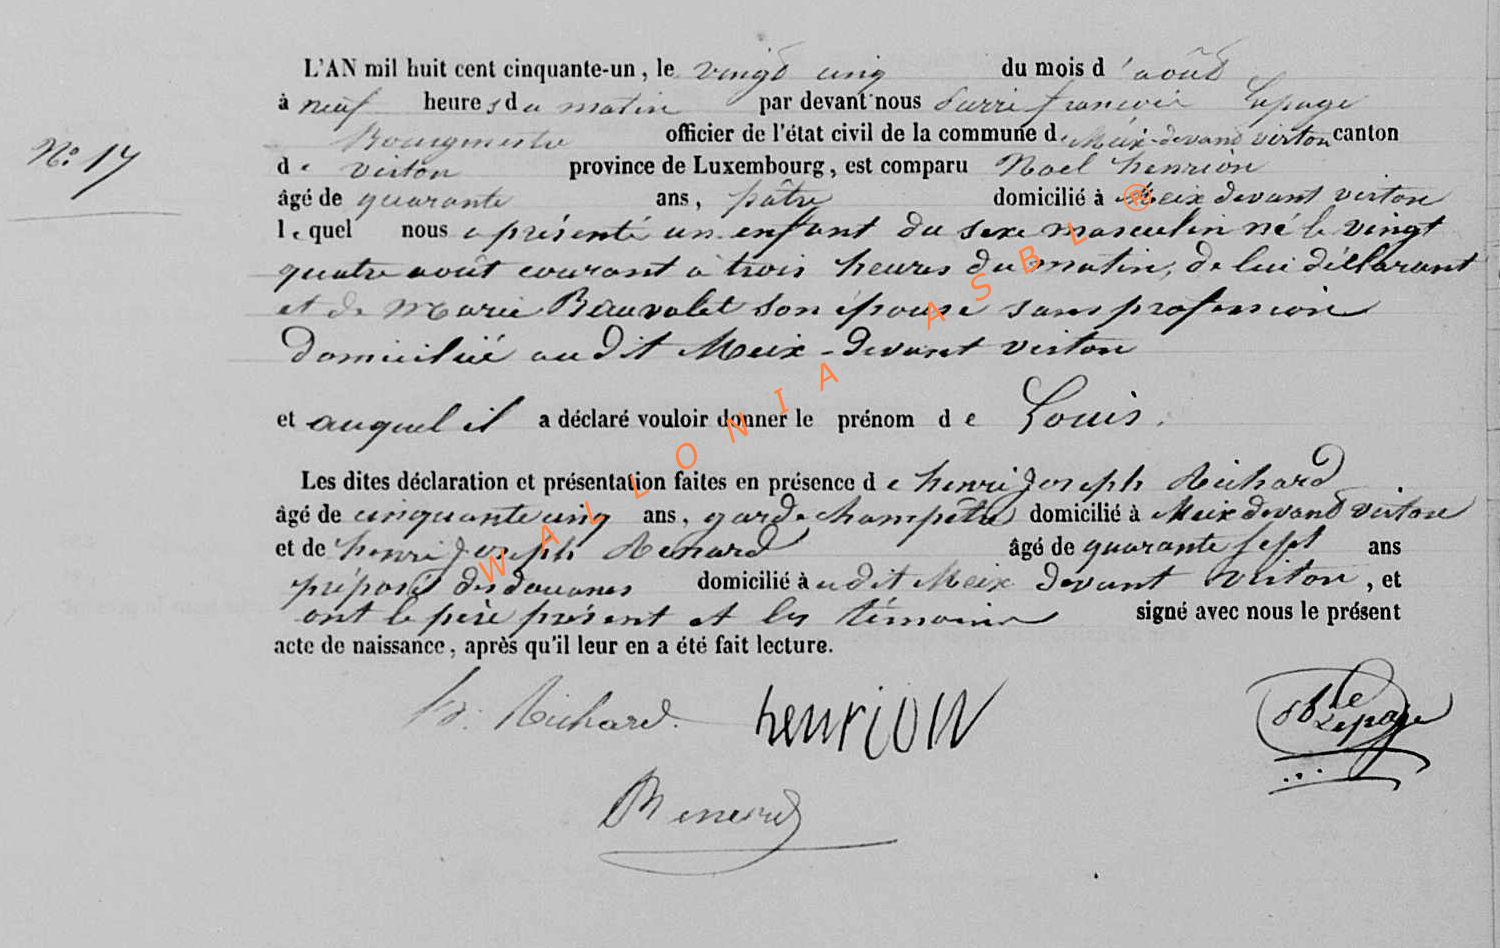 L'AN mil huit cent cinquante-un, le vingt cinq du mois d'août
à neuf heures du matin par devant nous Pierre françois Lepage
Bourgmestre officier de l'état civil de la commune de Meix-devant virton canton
N° 17
de virton province de Luxembourg, est comparu Noel henrion
âgé de quarante ans, pâtre domicilié à Meix devant virton
lequel nous a présenté un enfant du sexe masculin né le vingt
quatre août courant à trois heures du matin, de lui déclarant
et de Marie Beauvalet son épouse sans profession
domiciliée audit Meix-devant virton
et auquel il a déclaré vouloir donner le prénom de Louis.
Les dites déclaration et présentation faites en présence de henri Joseph Richard
âgé de cinquante cinq ans, garde champêtre domicilié à Meix devant virton
et de henri Joseph Renard âgé de quarante sept ans
préposé des douanes domicilié audit Meix devant virton, et
ont le père présent et les témoins signé avec nous le présent
acte de naissance, après qu'il leur en a été fait lecture.
Richard henrion Lepage
Renard
WALLONIA ASBL ®